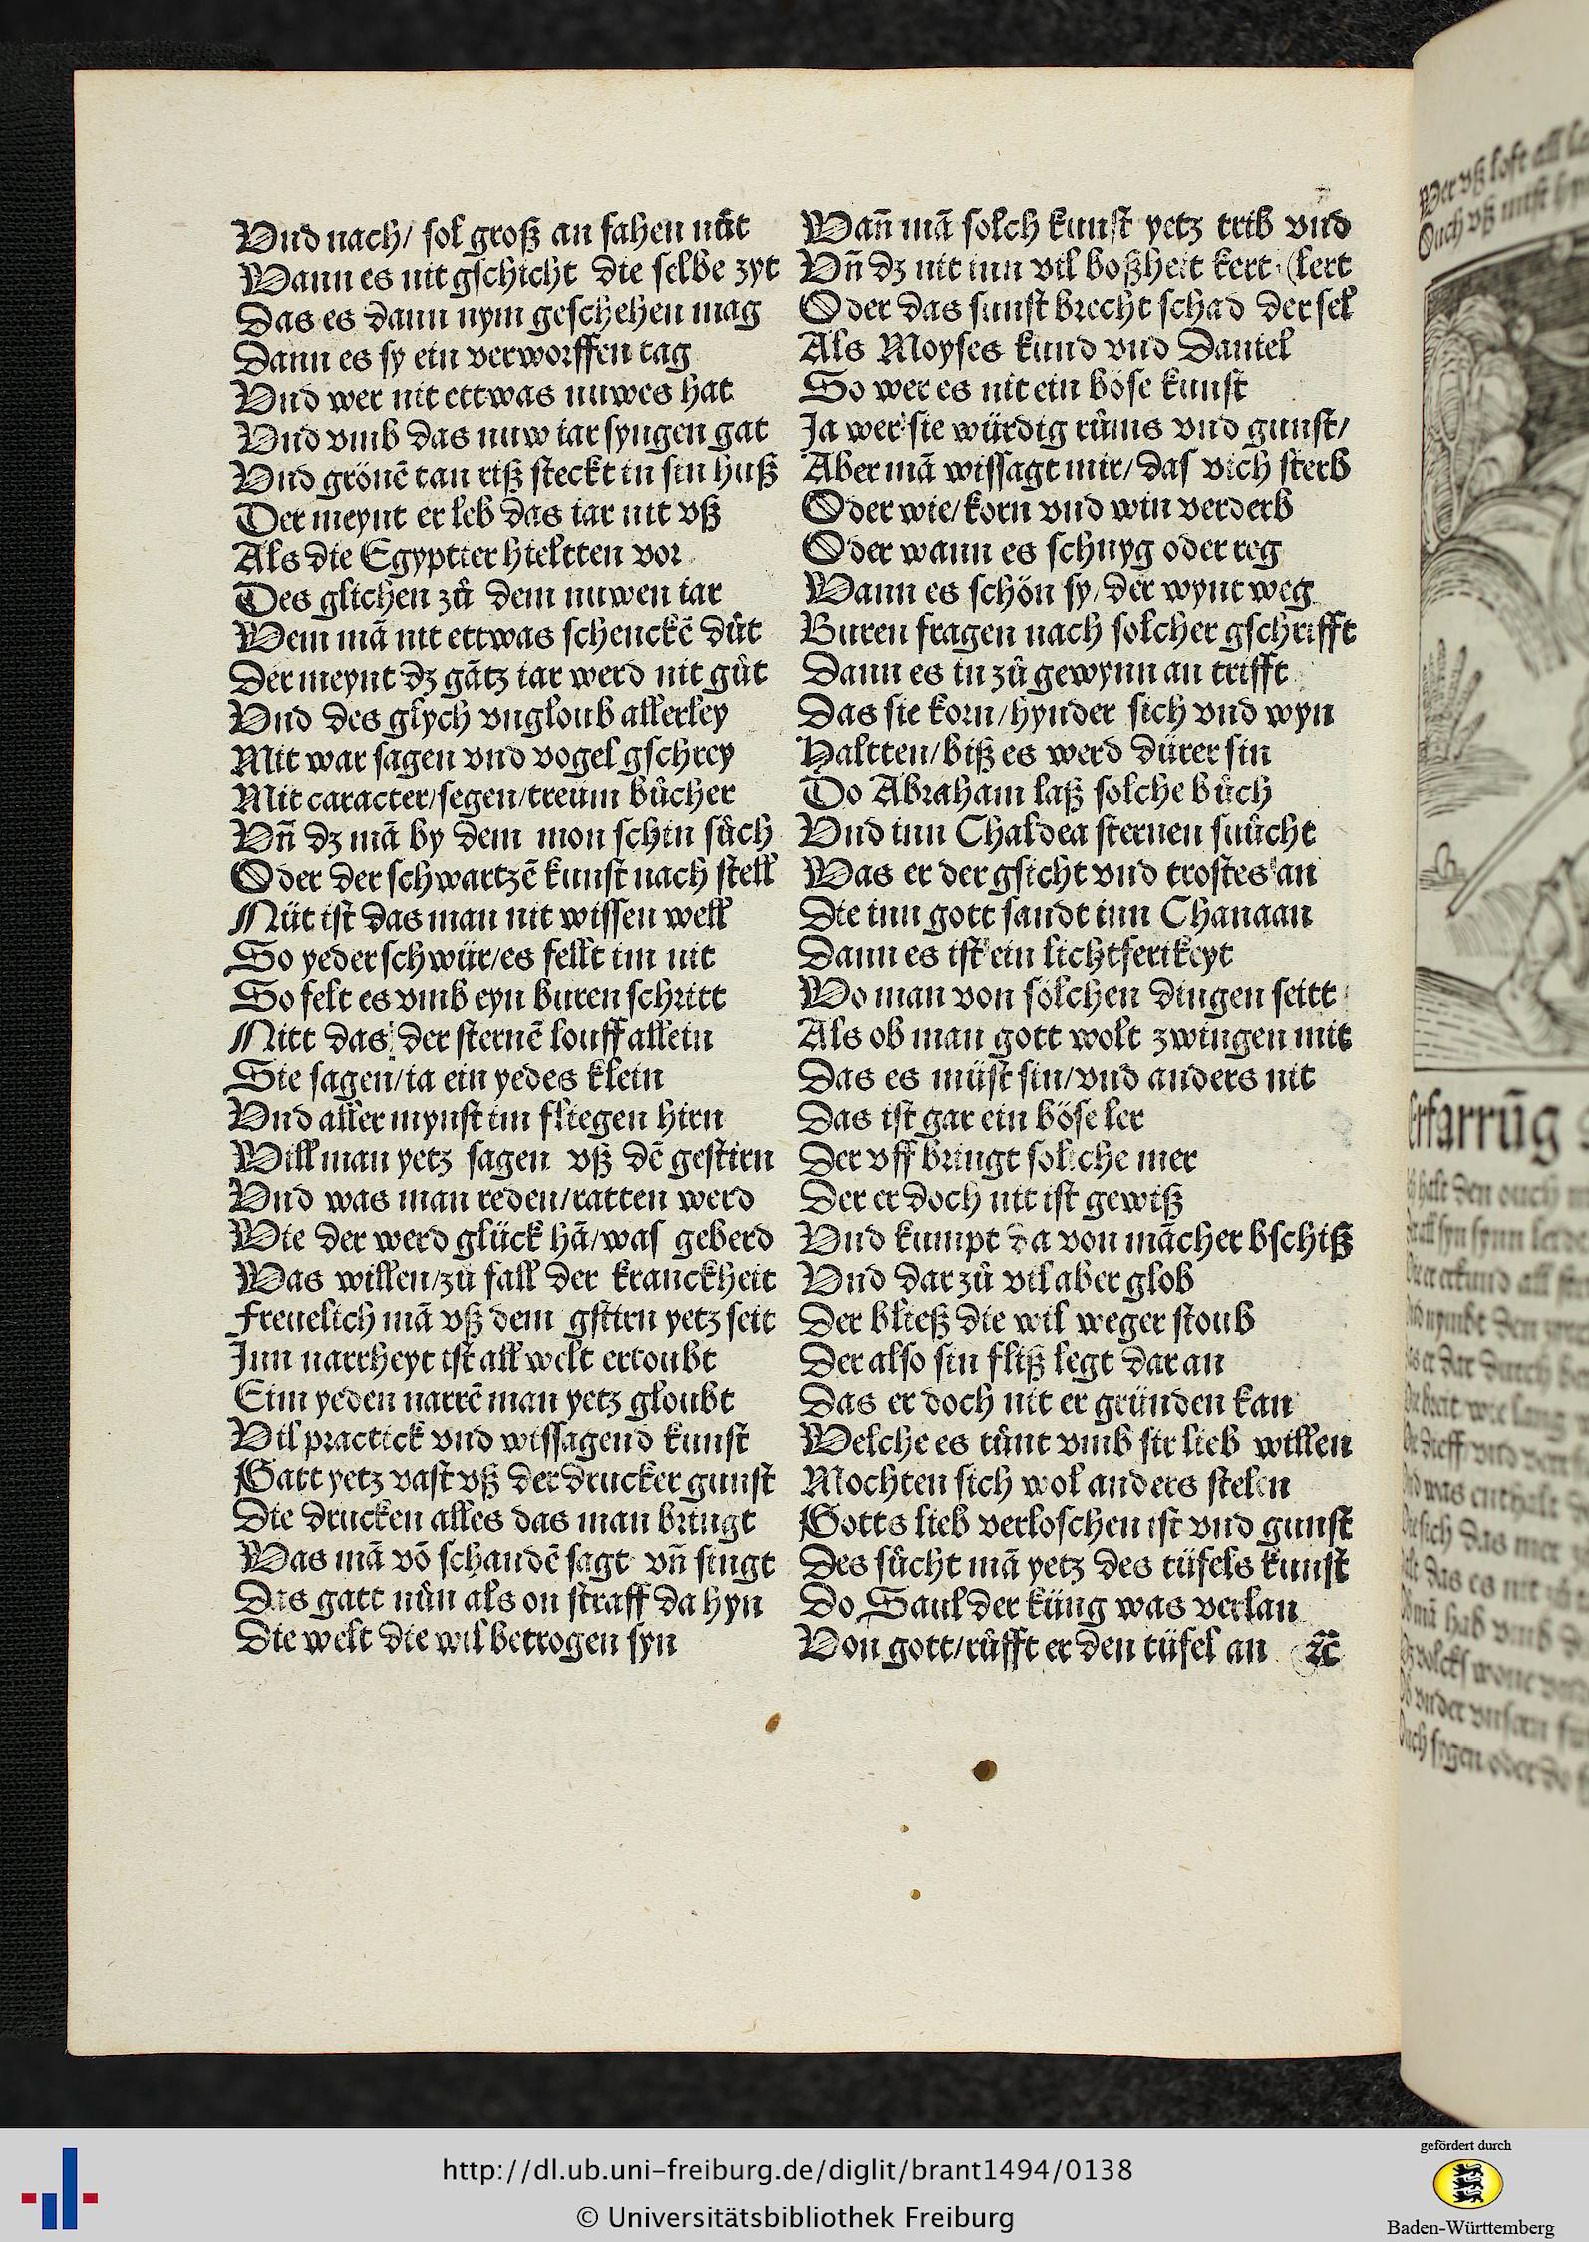 Vnd nach/ sol groß an fahen nüt
Wann es nit gschicht die selbe zyt
Das es dann nym geschehen mag
Dann es sy ein verworffen tag
Vnd wer nit ettwas nuwes hat
Vnd vmb das nuw iar syngen gat
Vnd grönē tan riß steckt in sin huß
Der meynt er leb das iar nit vß
Als die Egyptier hieltten vor
Des glichen zů dem nuwen iar
Wem mā nit ettwas schenckē důt
Der meynt dz gātz iar werd nit gůt
Vnd des glych vngloub allerley
Mit war sagen vnd vogel gschrey
Mit caracter/segen/treüm bůcher
Vn̄ dz mā by dem mon schin sůch
Oder der schwartzē kunst nach stell
Nüt ist das man nit wissen well
So yeder schwür/es fellt im nit
So felt es vmb eyn buren schritt
Nitt das der sternē louff allein
Sie sagen/ia ein yedes klein
Vnd aller mynst im fliegen hirn
Will man yetz sagen vß dē gestirn
Vnd was man reden/ratten werd
Wie der werd glück hā/was geberd
Was willen/zů fall der kranckheit
Freuelich mā vß dem gstirn yetz seit
Jnn narrheyt ist all welt ertoubt
Eim yeden narrē man yetz gloubt
Vil practick vnd wissagend kunst
Gatt yetz vast vß der drucker gunst
Die drucken alles das man bringt
Was mā vō schandē sagt vn̄ singt
Das gatt nůn als on straff da hyn
Die welt die wil betrogen syn
Wan̄ mā solch kunst yetz trib vnd
Vn̄ dz nit inn vil boßheit kert (lert
Oder das sunst brecht schad der sel
Als Moyses kund vnd Daniel
So wer es nit ein böse kunst
Ja wer sie würdig růms vnd gunst/
Aber mā wissagt mir/das vich sterb
Oder wie/korn vnd win verderb
Oder wann es schnyg oder reg
Wann es schön sy/der wynt weg
Buren fragen nach solcher gschrifft
Dann es in zů gewynn an trifft
Das sie korn/hynder sich vnd wyn
Haltten/biß es werd dürer sin
Do Abraham laß solche bůch
Vnd inn Chaldea sternen suůcht
Was er der gsicht vnd trostes an
Die inn gott sandt inn Chanaan
Dann es ist ein lichtferikeyt
Wo man von sölchen dingen seitt
Als ob man gott wolt zwingen mit
Das es müst sin/vnd anders nit
Das ist gar ein böse ler
Der vff bringt soliche mer
Der er doch nit ist gewiß
Vnd kumpt da von mācher bschiß
Vnd dar zů vil aber glob
Der bließ die wil weger stoub
Der also sin fliß legt dar an
Das er doch nit er gründen kan
Welche es tůnt vmb sir lieb willen
Mochten sich wol anders stelen
Gotts lieb verloschen ist vnd gunst
Des sůcht mā yetz des tüfels kunst
Do Saul der küng was verlan
Von gott/růfft er den tüfel an ⁊c
Wer vß
Ouch vß
Erfarrūg
http://dl.ub.uni-freiburg.de/diglit/brant1494/0138
© Universitätsbibliothek Freiburg
gefördert durch
Baden-Württemberg